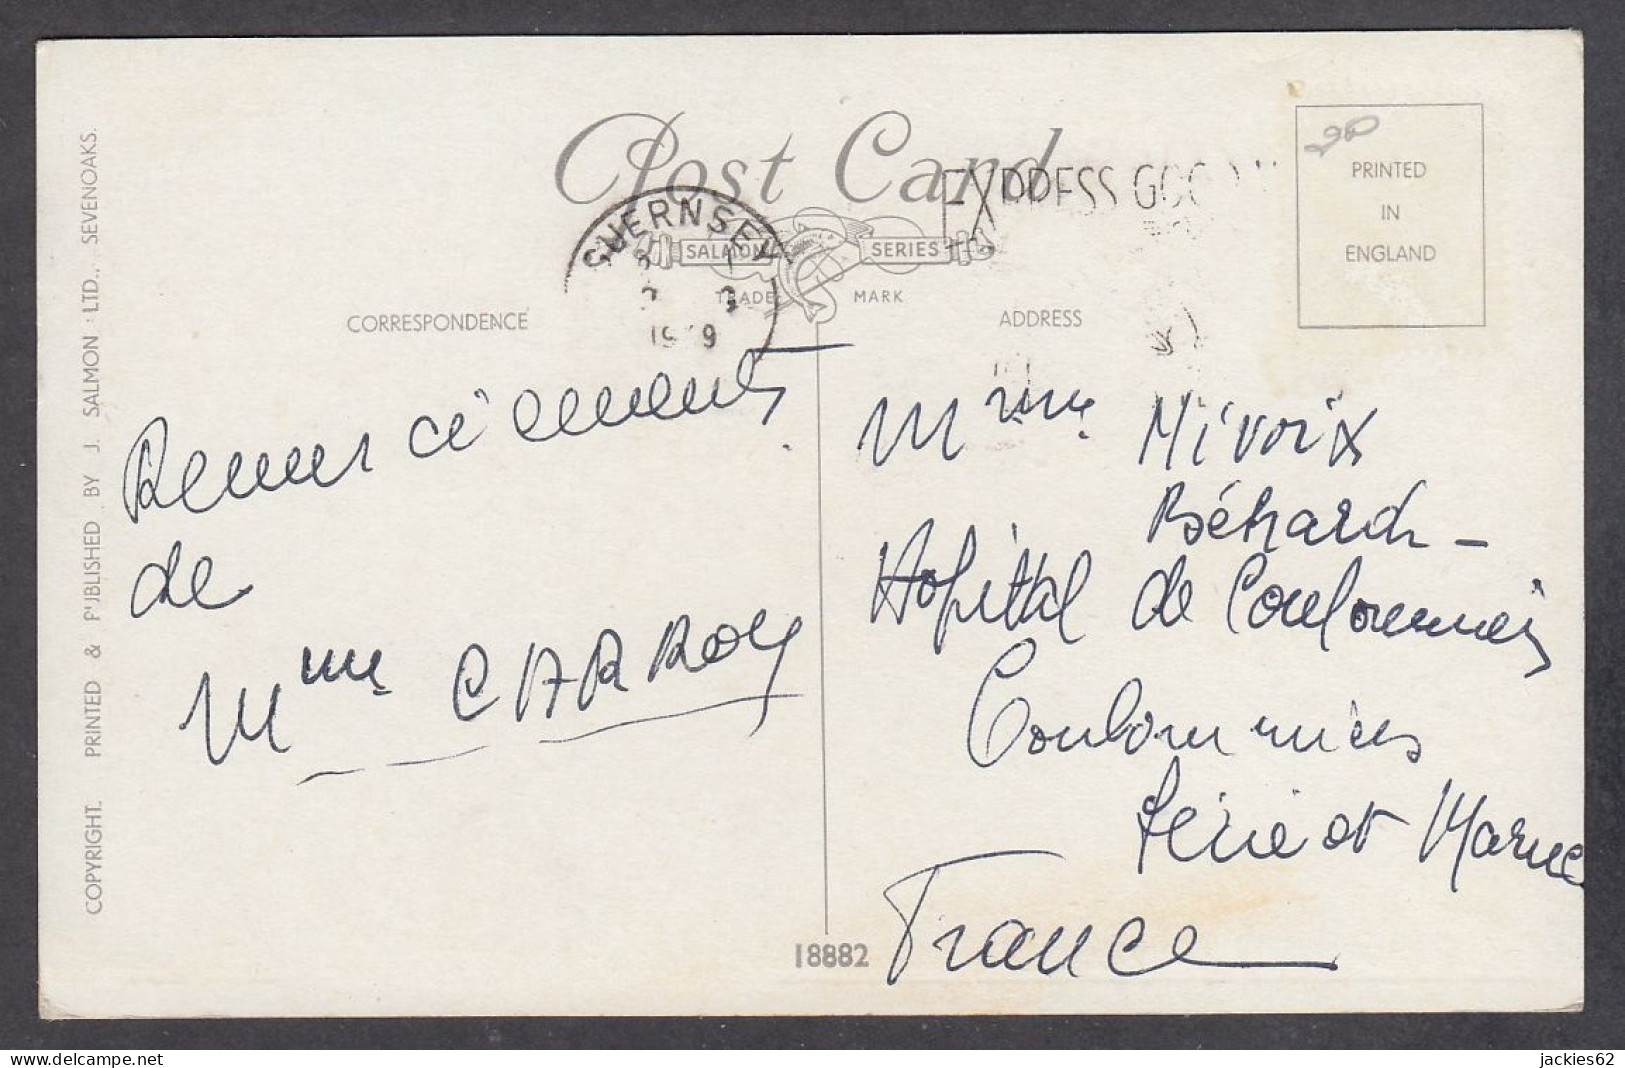 Post Card
EXPRESS GOO
GUERNSEY
SALMON SERIES
TRADE MARK
19 9
PRINTED
IN
ENGLAND
20
CORRESPONDENCE
ADDRESS
Remerciements
de
Mme CARROY
Mme Mivoix
Béhard -
Hôpital de Coulommiers
Coulommiers
Seine et Marne
France
18882
COPYRIGHT. PRINTED & PUBLISHED BY J. SALMON LTD., SEVENOAKS.
jackies62